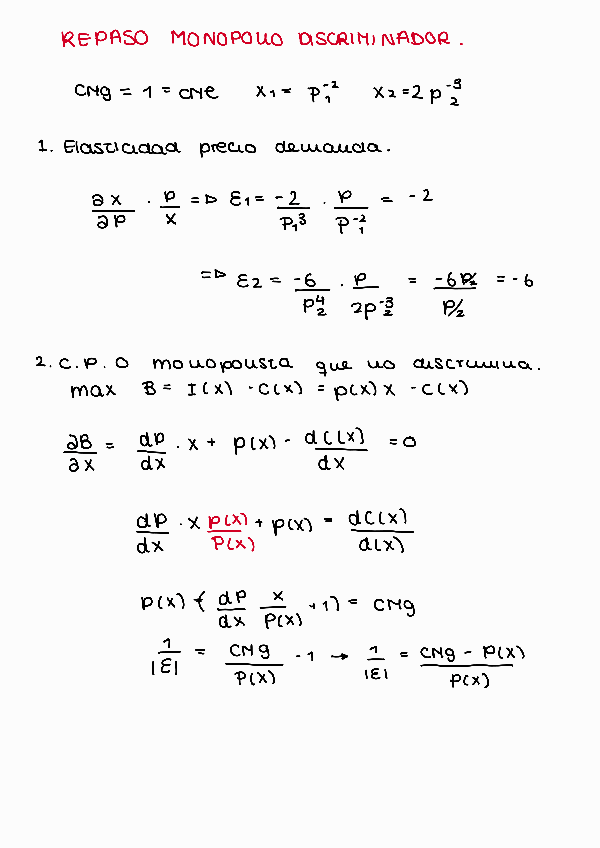 REPASO MONOPOLIO DISCRIMINADOR.
CMg = 1 = CMe x₁ = p₁⁻² x₂ = 2p₂⁻³
1. Elasticidad precio demanda.
∂x/∂p · p/x => ε1 = -2/p₁³ · p/p₁⁻² = -2
=> ε2 = -6/p₂⁴ · p/2p₂⁻³ = -6p/2/p/2 = -6
2. C.P.O monopolista que no discrimina.
max B = I(x) - C(x) = p(x)x - C(x)
∂B/∂x = dp/dx · x + p(x) - dC(x)/dx = 0
dp/dx · x p(x)/p(x) + p(x) = dC(x)/d(x)
p(x) (dp/dx x/p(x) + 1) = CMg
1/|ε| = CMg/p(x) - 1 → 1/|ε| = CMg - p(x)/p(x)